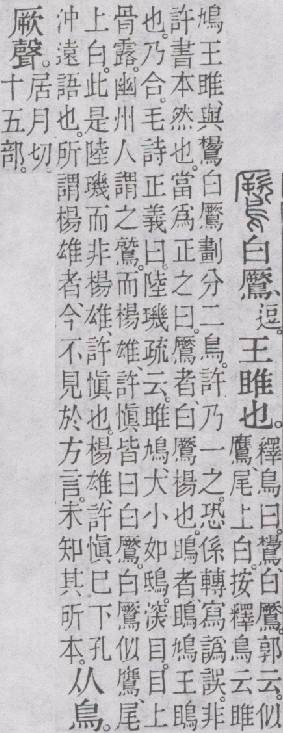 鷢白鷢、逗。王雎也。釋鳥曰。鸉、白鷢。郭云。似
鷹、尾上白。按釋鳥云雎
鳩王雎、與鸉白鷢劃分二鳥。許乃一之。恐係轉寫譌誤。非
許書本然也。當爲正之曰。鷢者、白鷢楊也。鴡者、鴡鳩王鴡
也。乃合。毛詩正義曰。陸璣疏云。雎鳩大小如鴟。深目。目上
骨露。幽州人謂之鷲。而楊雄、許愼皆曰白鷢。白鷢似鷹。尾
上白。此是陸璣而非楊雄、許愼也。楊雄、許愼巳下孔
沖遠語也。所謂楊雄者、今不見於方言。未知其所本。从鳥。
厥聲。居月切。
十五部。